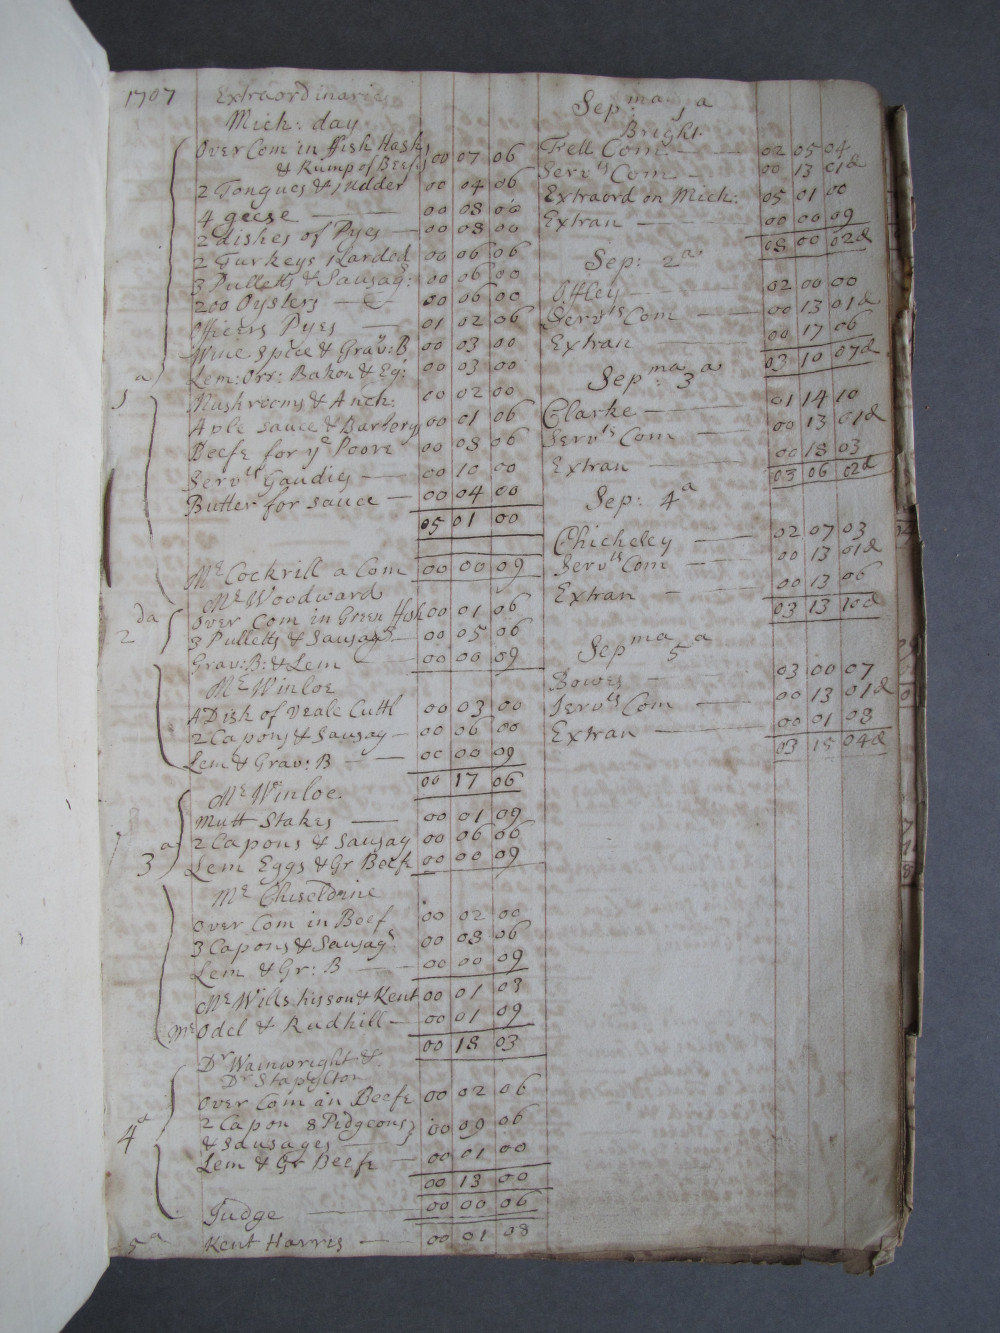 1707 Extraordinaries
Mich: day
Over Com in ffish Hashs
& Rump of Beefe 00 07 06
2 Tongues & 1 udder 00 04 06
4 geese 00 08 00
2 dishes of Pyes 00 08 00
2 Turkeys 1 Larded 00 06 06
3 Pulletts & Sausags: 00 06 00
200 Oysters 00 06 00
Officers Pyes 01 02 06
Wine Spice & Grav: B 00 03 00
Lem: Orr: Bakon & Eg: 00 03 00
1a
Mushrooms & Anch: 00 02 00
Aple Sauce & Barberys 00 01 06
Beefe for ye Poore 00 08 06
Servts Gaudies 00 10 00
Butter for sauce 00 04 00
05 01 00
Mr Cockrill a Com 00 00 09
Mr Woodward
2da
Over Com in Green ffish 00 01 06
3 Pulletts & Sausags 00 05 06
Grav: B: & Lem 00 00 09
Mr Winloe
A Dish of Veale Cuttl 00 03 00
2 Capons & Sausag 00 06 00
Lem & Grav: B 00 00 09
00 17 06
Mr Winloe
Mutt Stakes 00 01 09
2 Capons & Sausag 00 06 00
3a
Lem Eggs & Gr Beefe 00 00 09
Mr Chiseldine
Over Com in Beef 00 02 00
3 Capons & Sausags 00 08 06
Lem & Gr: B 00 00 09
Mr Wills hisson & Kent 00 01 03
Mr Odel & Rudhill 00 01 09
00 18 03
Dr Wainwright &
Dr Stapylton
Over Com in Beefe 00 02 06
4a
2 Capon 8 Pidgeons
& Sausages 00 09 06
Lem & Gr Beefe 00 01 00
00 13 00
Judge 00 00 06
5a Kent Harris 00 01 08
Sepma: 1a
Bright
Fell Com. 02 05 04
Servts Com 00 13 01d
Extraord on Mich: 05 01 00
Extran 00 00 09
08 00 02d
Sep: 2a
Offley 02 00 00
Servts Com 00 13 01d
Extran 00 17 06
03 10 07d
Sepma: 3a
Clarke 01 14 10
Servts Com 00 13 01d
Extran 00 18 03
03 06 02d
Sep: 4a
Chicheley 02 07 03
Servts Com 00 13 01d
Extran 00 13 06
03 13 10d
Sepma 5a
Bowes 03 00 07
Servts Com 00 13 01d
Extran 00 01 08
03 15 04d